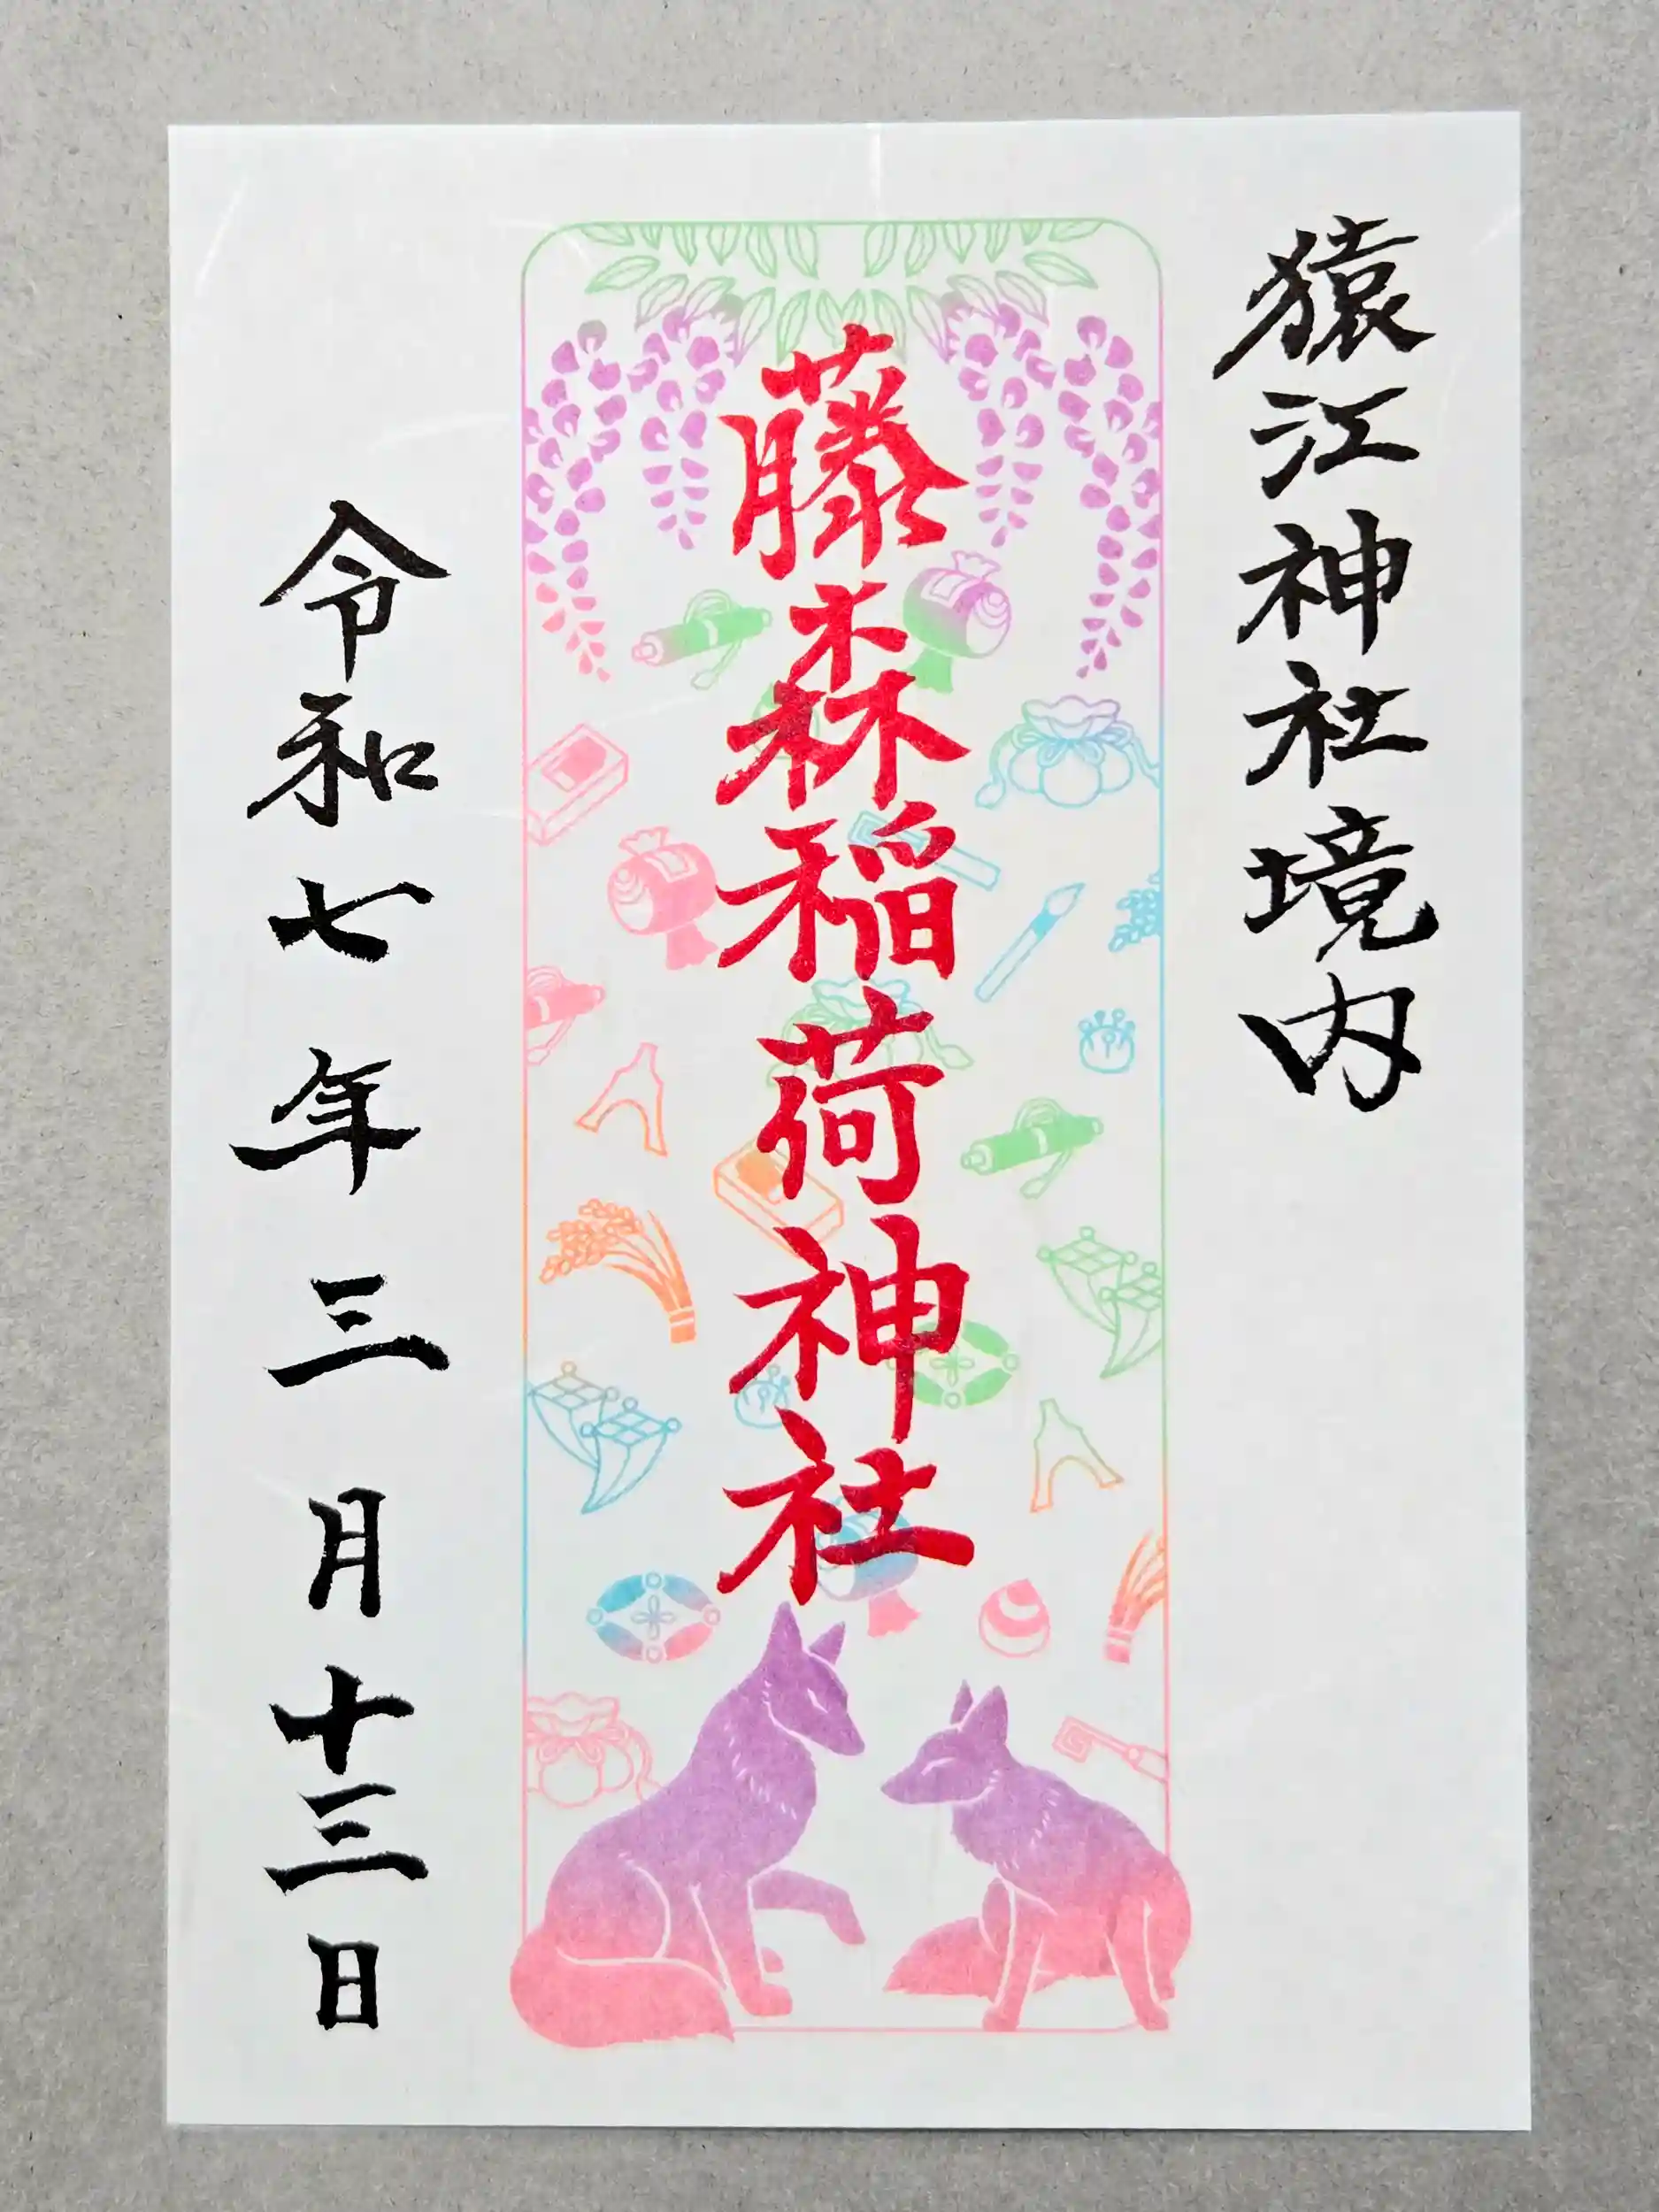 猿江神社境内
藤森稲荷神社
令和七年三月十三日